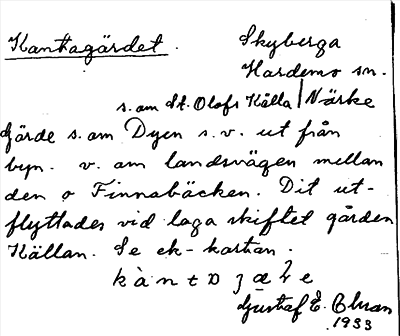 Kantagärdet.
Skyberga
Hardemo sn.
s. om St. Olofs Källa / Närke
Gärde s. om Dyen s.v. ut från
byn. v. om landsvägen mellan
den o Finnabäcken. Dit ut-
flyttades vid laga skiftet gården
Källan. Se ek-kartan.
Gustaf E.
1933